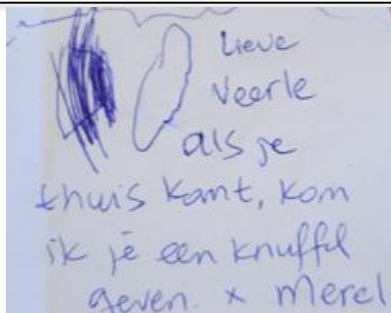 Lieve
Veerle
als je
thuis komt, kom
ik je een knuffel
geven. x Merel